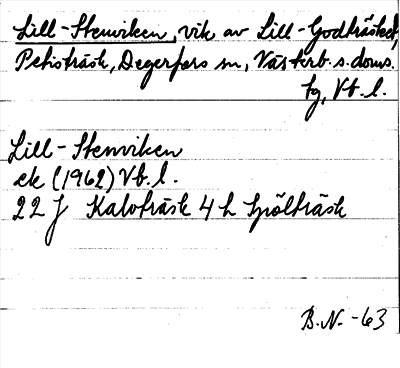 Lill-Stenviken, vik av Lill-Godträsket,
Petisträsk, Degerfors sn, Västerb. s. doms.
tg, Vb. l.
Lill-Stenviken
ek (1962) Vb. l.
22 J Kalvträsk 4 h Spölträsk
B.N. -63